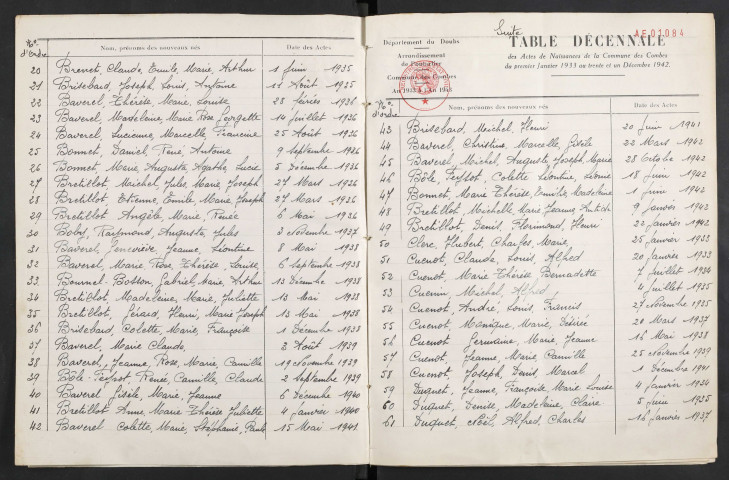 N° d'Ordre Nom, prénoms des nouveaux nés Date des Actes
20 Brenet, Claude, Emile, Marie, Arthur 1 Juin 1935
21 Brisebard, Joseph, Louis, Antoine 11 Août 1935
22 Baverel, Thérèse Marie, Louise 28 février 1936
23 Baverel, Madeleine, Marie Rose Georgette 14 Juillet 1936
24 Baverel, Lucienne, Marcelle, Francine 25 Août 1936
25 Bonnet, Daniel, René, Antoine 9 Septembre 1936
26 Bonnet, Marie, Auguste, Agathe, Lucie 5 Décembre 1936
27 Bretillot, Michel, Jules, Marie, Joseph 27 Mars 1936
28 Bretillot, Etienne, Emile, Marie, Joseph 27 Mars 1936
29 Bretillot Angèle, Marie, Renée 6 Mai 1936
30 Boby, Raymond, Auguste, Jules 3 Novembre 1937
31 Baverel Geneviève, Jeanne, Léontine 8 Mai 1938
32 Baverel, Marie Rose, Thérèse, Louise 6 Septembre 1938
33 Bonnet-Boston, Gabriel, Marie, Arthur 13 Décembre 1938
34 Bretillot, Madeleine, Marie, Juliette 13 Mai 1938
35 Bretillot, Gérard, Henri, Marie, Joseph 13 Mai 1938
36 Brisebard, Colette, Marie, Françoise 1 Décembre 1938
37 Baverel, Marie Claude 2 Août 1939
38 Baverel, Jeanne, Rose, Marie, Camille 19 Novembre 1939
39 Bôle-Feysot, Renée, Camille, Claude 2 Septembre 1939
40 Baverel Gisèle, Marie, Jeanne 6 Décembre 1940
41 Bretillot, Anne, Marie Thérèse Juliette 4 Janvier 1940
42 Baverel Colette, Marie, Stéphanie, Paule 15 Mai 1941
Suite
AE01084
Département du Doubs
Arrondissement de Pontarlier
Commune des Combes
An 1933 à An 1943
TABLE DÉCENNALE
des Actes de Naissances de la Commune des Combes
du premier Janvier 1933 au trente et un Décembre 1942.
N° d'ordre Nom, prénoms des nouveaux nés Date des Actes
43 Brisebard, Michel, Henri 20 Juin 1941
44 Baverel, Christine, Marcelle, Gisèle 22 Mars 1942
45 Baverel, Michel, Auguste, Joseph, Marie 28 Octobre 1942
46 Bôle Feysot, Colette Léontine, 18 Juin 1942
47 Bonnet, Marie Thérèse, Emilie, Madeleine 1 Juin 1942
48 Bretillot Michelle, Marie, Jeanne, 9 Janvier 1942
49 Bretillot, Denis, Florimond, Henri 22 Janvier 1942
50 Clerc, Hubert, Charles, Marie, 25 Janvier 1933
51 Cuenot, Claude, Louis, Alfred 20 Janvier 1933
52 Cuenot, Marie Thérèse Bernadette 7 Juillet 1934
53 Cuenin, Michel, Alfred, 4 Juillet 1935
54 Cuenot, André, Louis, Francis 27 Novembre 1935
55 Cuenot, Monique, Marie, Désirée 20 Mars 1937
56 Cuenot, Germaine, Marie, Jeanne 16 Mai 1938
57 Cuenot, Jeanne, Marie, Camille 25 Novembre 1939
58 Cuenot, Joseph, Denis, Marcel 1 Décembre 1941
59 Duquet, Jeanne, Françoise, Marie, Louise 4 Janvier 1934
60 Duquet, Denise, Madeleine, Claire 5 Juin 1935
61 Duquet, Noël, Alfred, Charles 16 Janvier 1937